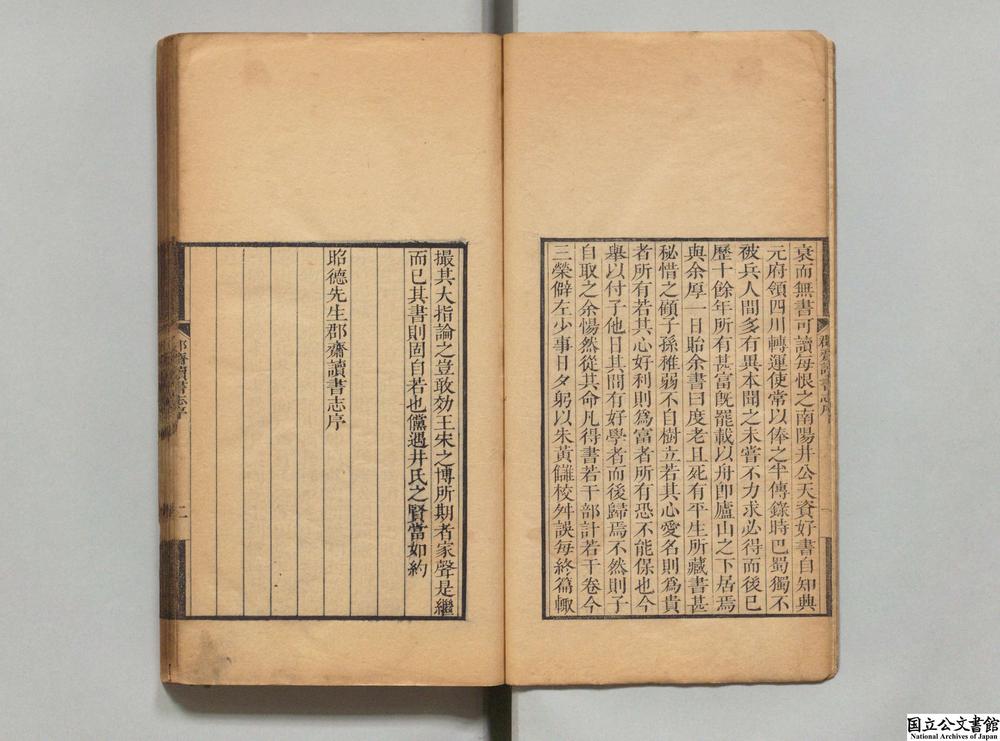 衰而無書可讀每恨之南陽井公天資好書自知興
元府領四川轉運使常以俸之半傳錄時巴蜀獨不
被兵人間多有異本聞之未嘗不力求必得而後已
歷十餘年所有甚富旣罷載以舟卽廬山之下居焉
與余厚一日貽余書曰度老且死有平生所藏書甚
秘惜之顧子孫稚弱不自樹立若其心愛名則爲貴
者所有若其心好利則爲富者所有恐不能保也今
舉以付子他日其間有好學者而後歸焉不然則子
自取之余愓然從其命凡得書若干部計若干卷今
三榮僻左少事日夕躬以朱黃讎校舛誤每終篇輒
郡齋讀書志序
撮其大指論之豈敢効王宋之博所期者家聲是繼
而已其書則固自若也儻遇井氏之賢當如約
昭德先生郡齋讀書志序
郡齋讀書志序
二
国立公文書館
National Archives of Japan